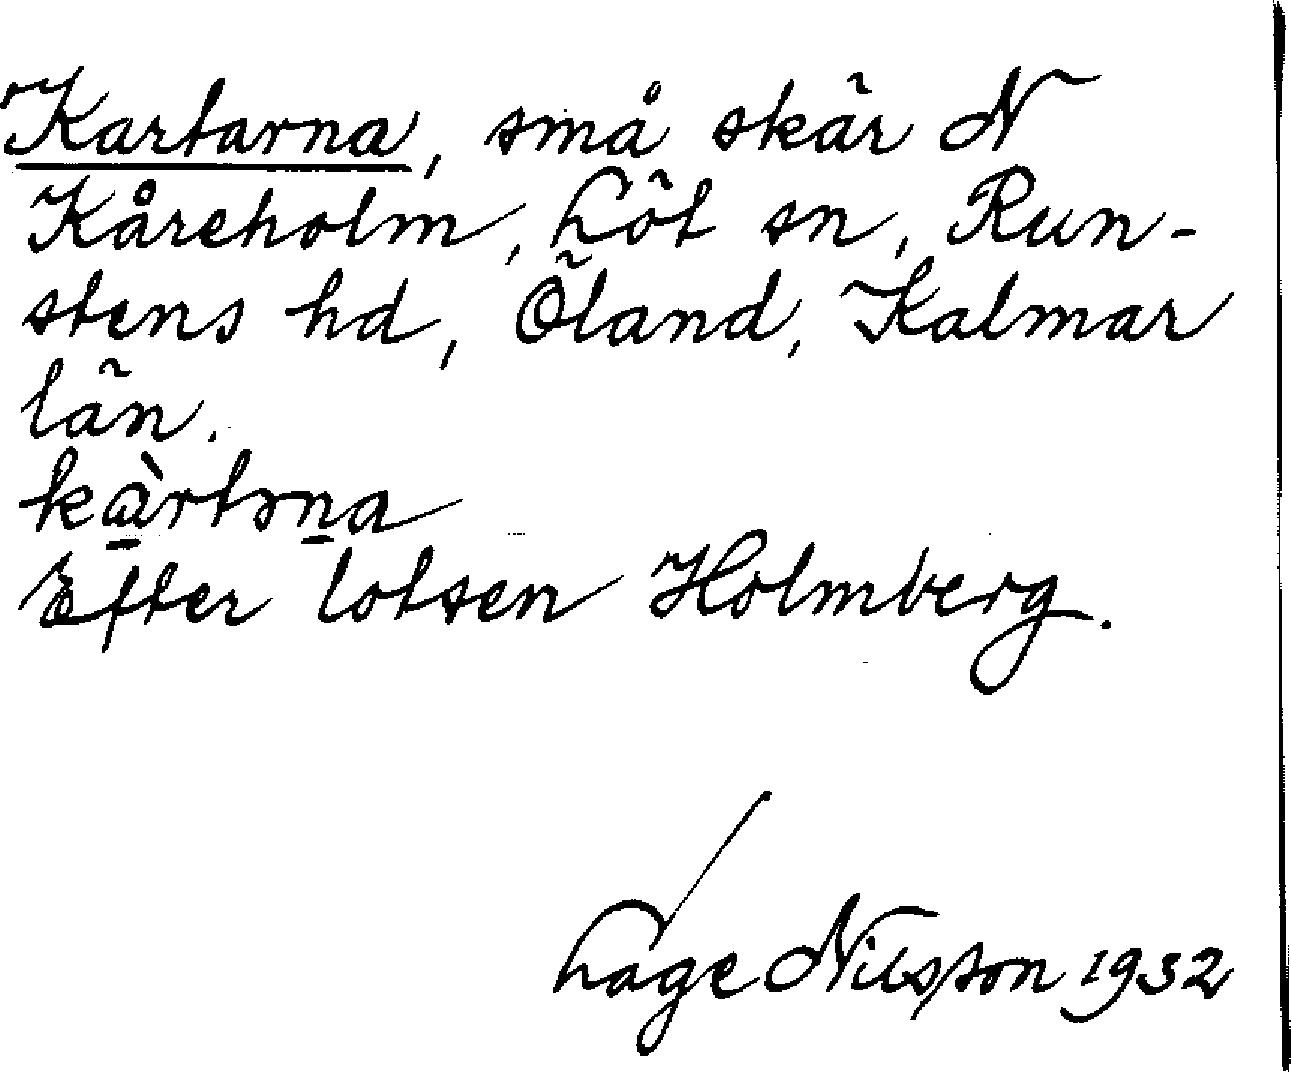 Kartarna, små skär N
Kåreholm, Löt sn, Run-
stens hd, Öland, Kalmar
län.
kàrtəna
Efter lotsen Holmberg.
Lage Nilsson 1932